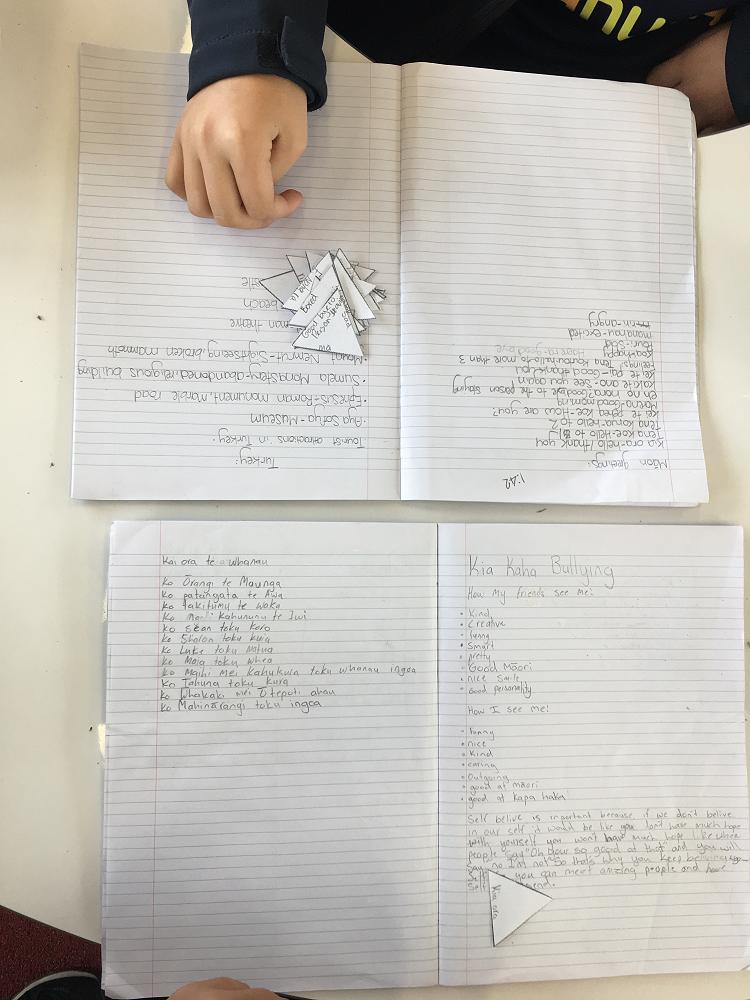 Turkey:
Tourist attractions in Turkey:
• Aya Sofya - Museum
• Ephesus - Roman monument, Marble road
• Sumela Monastery - abandoned, religious building
• Mount Nemrut - Sightseeing, broken mammoth
man theme
beach
Good bye to
Person leaving
Bored
Sad
Maori greetings:
1:42
Kia ora - hello / thank you
Tena koe - Hello to 1
Tena korua - hello to 2
kei te pehea koe - How are you?
Morena - Good morning
e noho ra - Goodbye to the person staying
ka kite ano - See you again
kei te pai - Good thank you
Feelings: Tena koutou - hello to more than 3
koa - happy Haere ra - goodbye
Pouri - Sad
manahau - excited
angry
Kai ora te whanau
Ko Ōrangi te Maunga
Ko patangata te Awa
Ko takitimu te waka
Ko Kahununu te Iwi
Ko Sean toku Koro
Ko Sharon toku kuia
Ko Luke toku Matua
Ko Maia toku whea
Ko Maihi Mei Kahukura toku whanau ingoa
Ko Tahuna toku kura
Ko Whakaki mei Ōtepoti ahau
Ko Mahinārangi toku ingoa
Kia Kaha Bullying
How My friends see me:
• Kind
• Creative
• funny
• Smart
• pretty
• Good Māori
• nice Smile
• Good personality
How I see me:
• funny
• nice
• Kind
• caring
• Outgoing
• good at māori
• good at kapa haka
Self belive is important because if we don't belive
in our self it would be like you don't have much hope
with yourself you won't have much hope like when
people say "Oh your so good at that" and you will
say no I'm not So that's why you keep beliving you
Self you can meet amazing people and have
Self
Kia ora